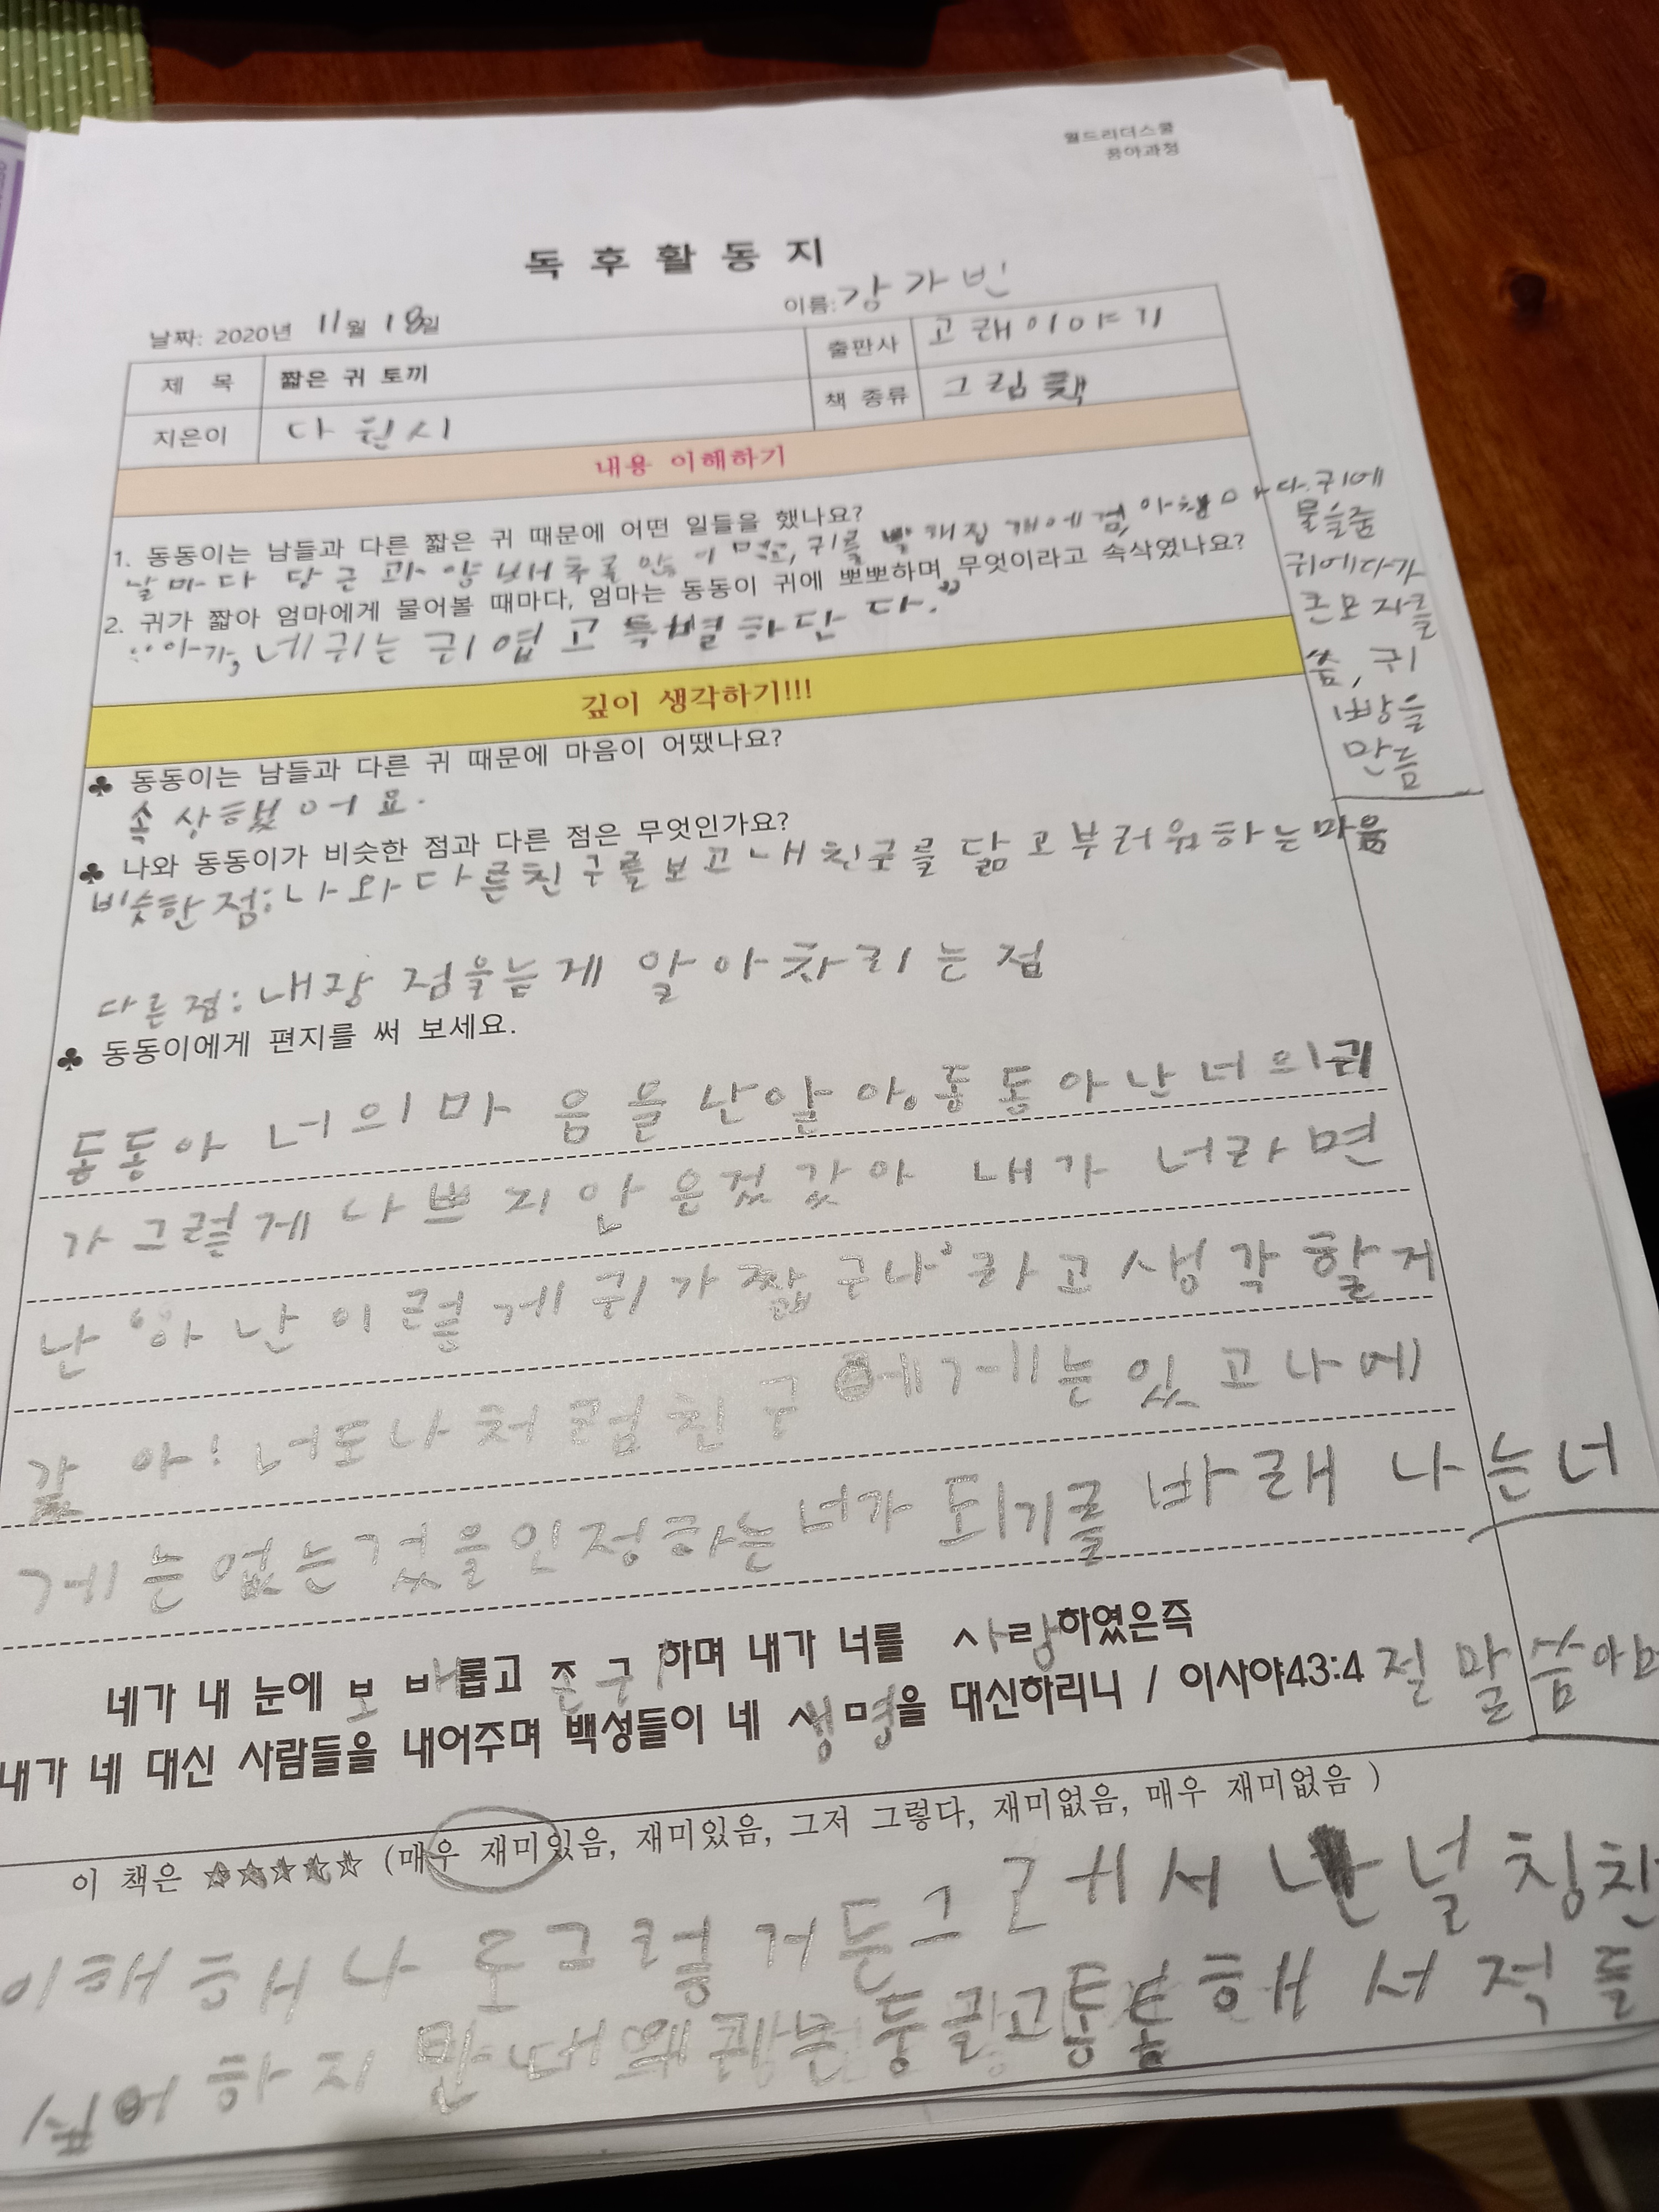 월드리더스쿨
품아과정
독후활동지
날짜: 2020년 11월 18일
이름: 강가빈
제 목 짧은 귀 토끼
출판사 고래이야기
지은이 다원시
책 종류 그림책
내용 이해하기
1. 동동이는 남들과 다른 짧은 귀 때문에 어떤 일들을 했나요?
날마다 당근과 양배추를 많이 먹고, 귀를 빨래집게에 아침마다 귀에
물을줌
귀에다가
큰모자를
씀, 귀
빵을
만듬
2. 귀가 짧아 엄마에게 물어볼 때마다, 엄마는 동동이 귀에 뽀뽀하며 무엇이라고 속삭였나요?
"아가, 네귀는 귀엽고 특별하단다."
깊이 생각하기!!!
♣ 동동이는 남들과 다른 귀 때문에 마음이 어땠나요?
속상했어요.
♣ 나와 동동이가 비슷한 점과 다른 점은 무엇인가요?
비슷한점: 나와다른친구를보고 내친구를 닮고부러워하는마음
다른점: 내장점을늦게 알아차리는점
♣ 동동이에게 편지를 써 보세요.
동동아 너의마음을난알아. 동동아난너의귀
가그렇게나쁘지안은것같아 내가 너라면
난 '아난이렇게귀가짧구나'라고생각할거
같아! 너도나처럼친구에게는있고나에
게는없는것을인정하는너가 되기를 바래 나는너
네가 내 눈에 보배롭고 존귀하며 내가 너를 사랑하였은즉
내가 네 대신 사람들을 내어주며 백성들이 네 생명을 대신하리니 / 이사야43:4
이 책은 ☆☆☆☆☆ (매우 재미있음, 재미있음, 그저 그렇다, 재미없음, 매우 재미없음 )
이해해나도그렇거든그래서난널칭찬
싶어하지 반대 귀는둥글고통통해서적들